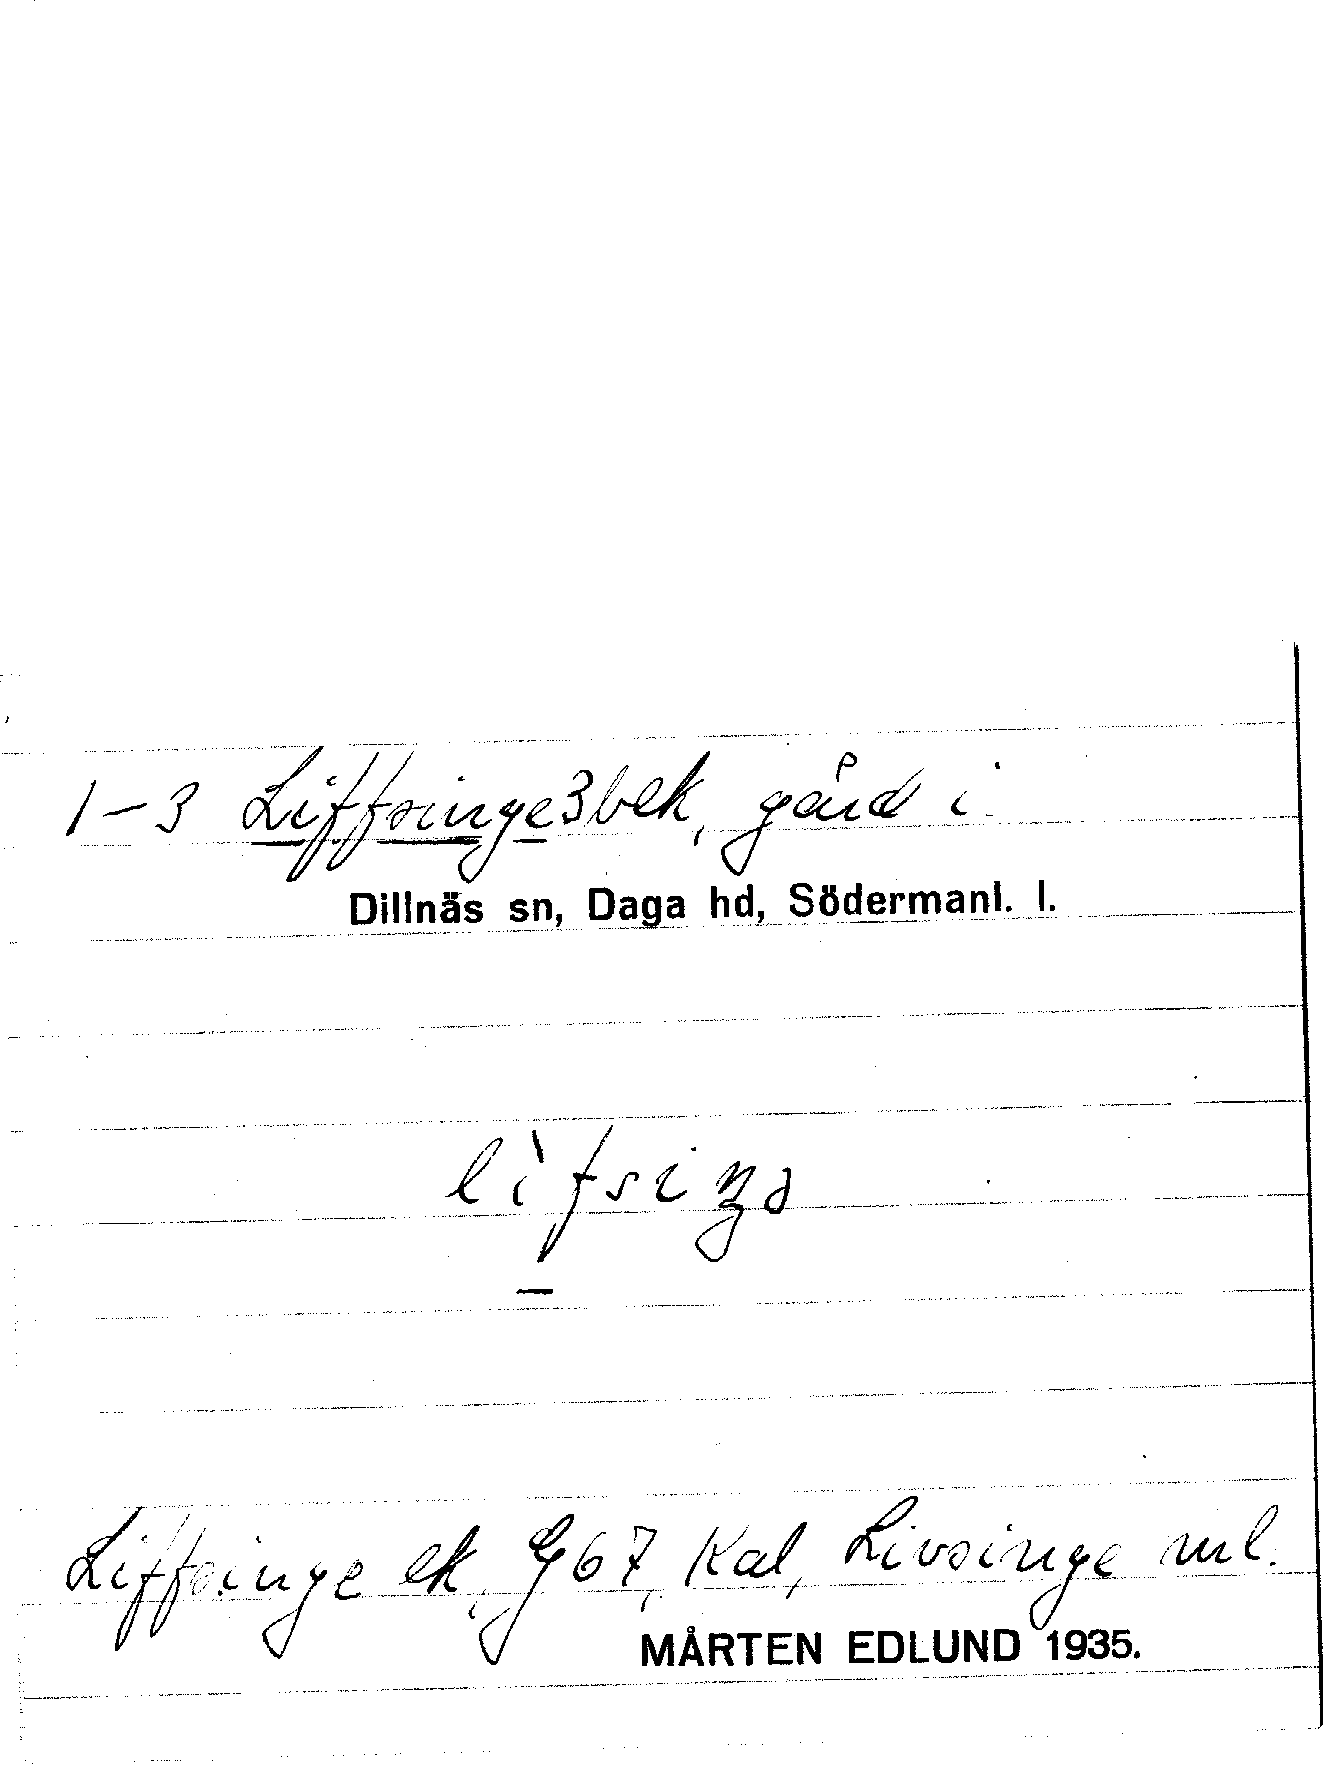 1-3 Liffsinge 3 bek, gård i
Dillnäs sn, Daga hd, Södermanl. l.
lìfsiŋə
Liffsinge ek, G67, Kal, Livsinge ml.
MÅRTEN EDLUND 1935.